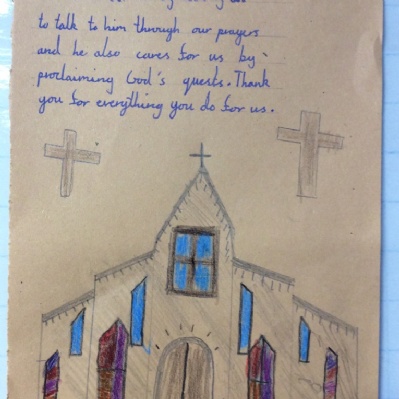 to talk to him through our prayers
and he also cares for us by
proclaiming God's quests. Thank
you for everything you do for us.